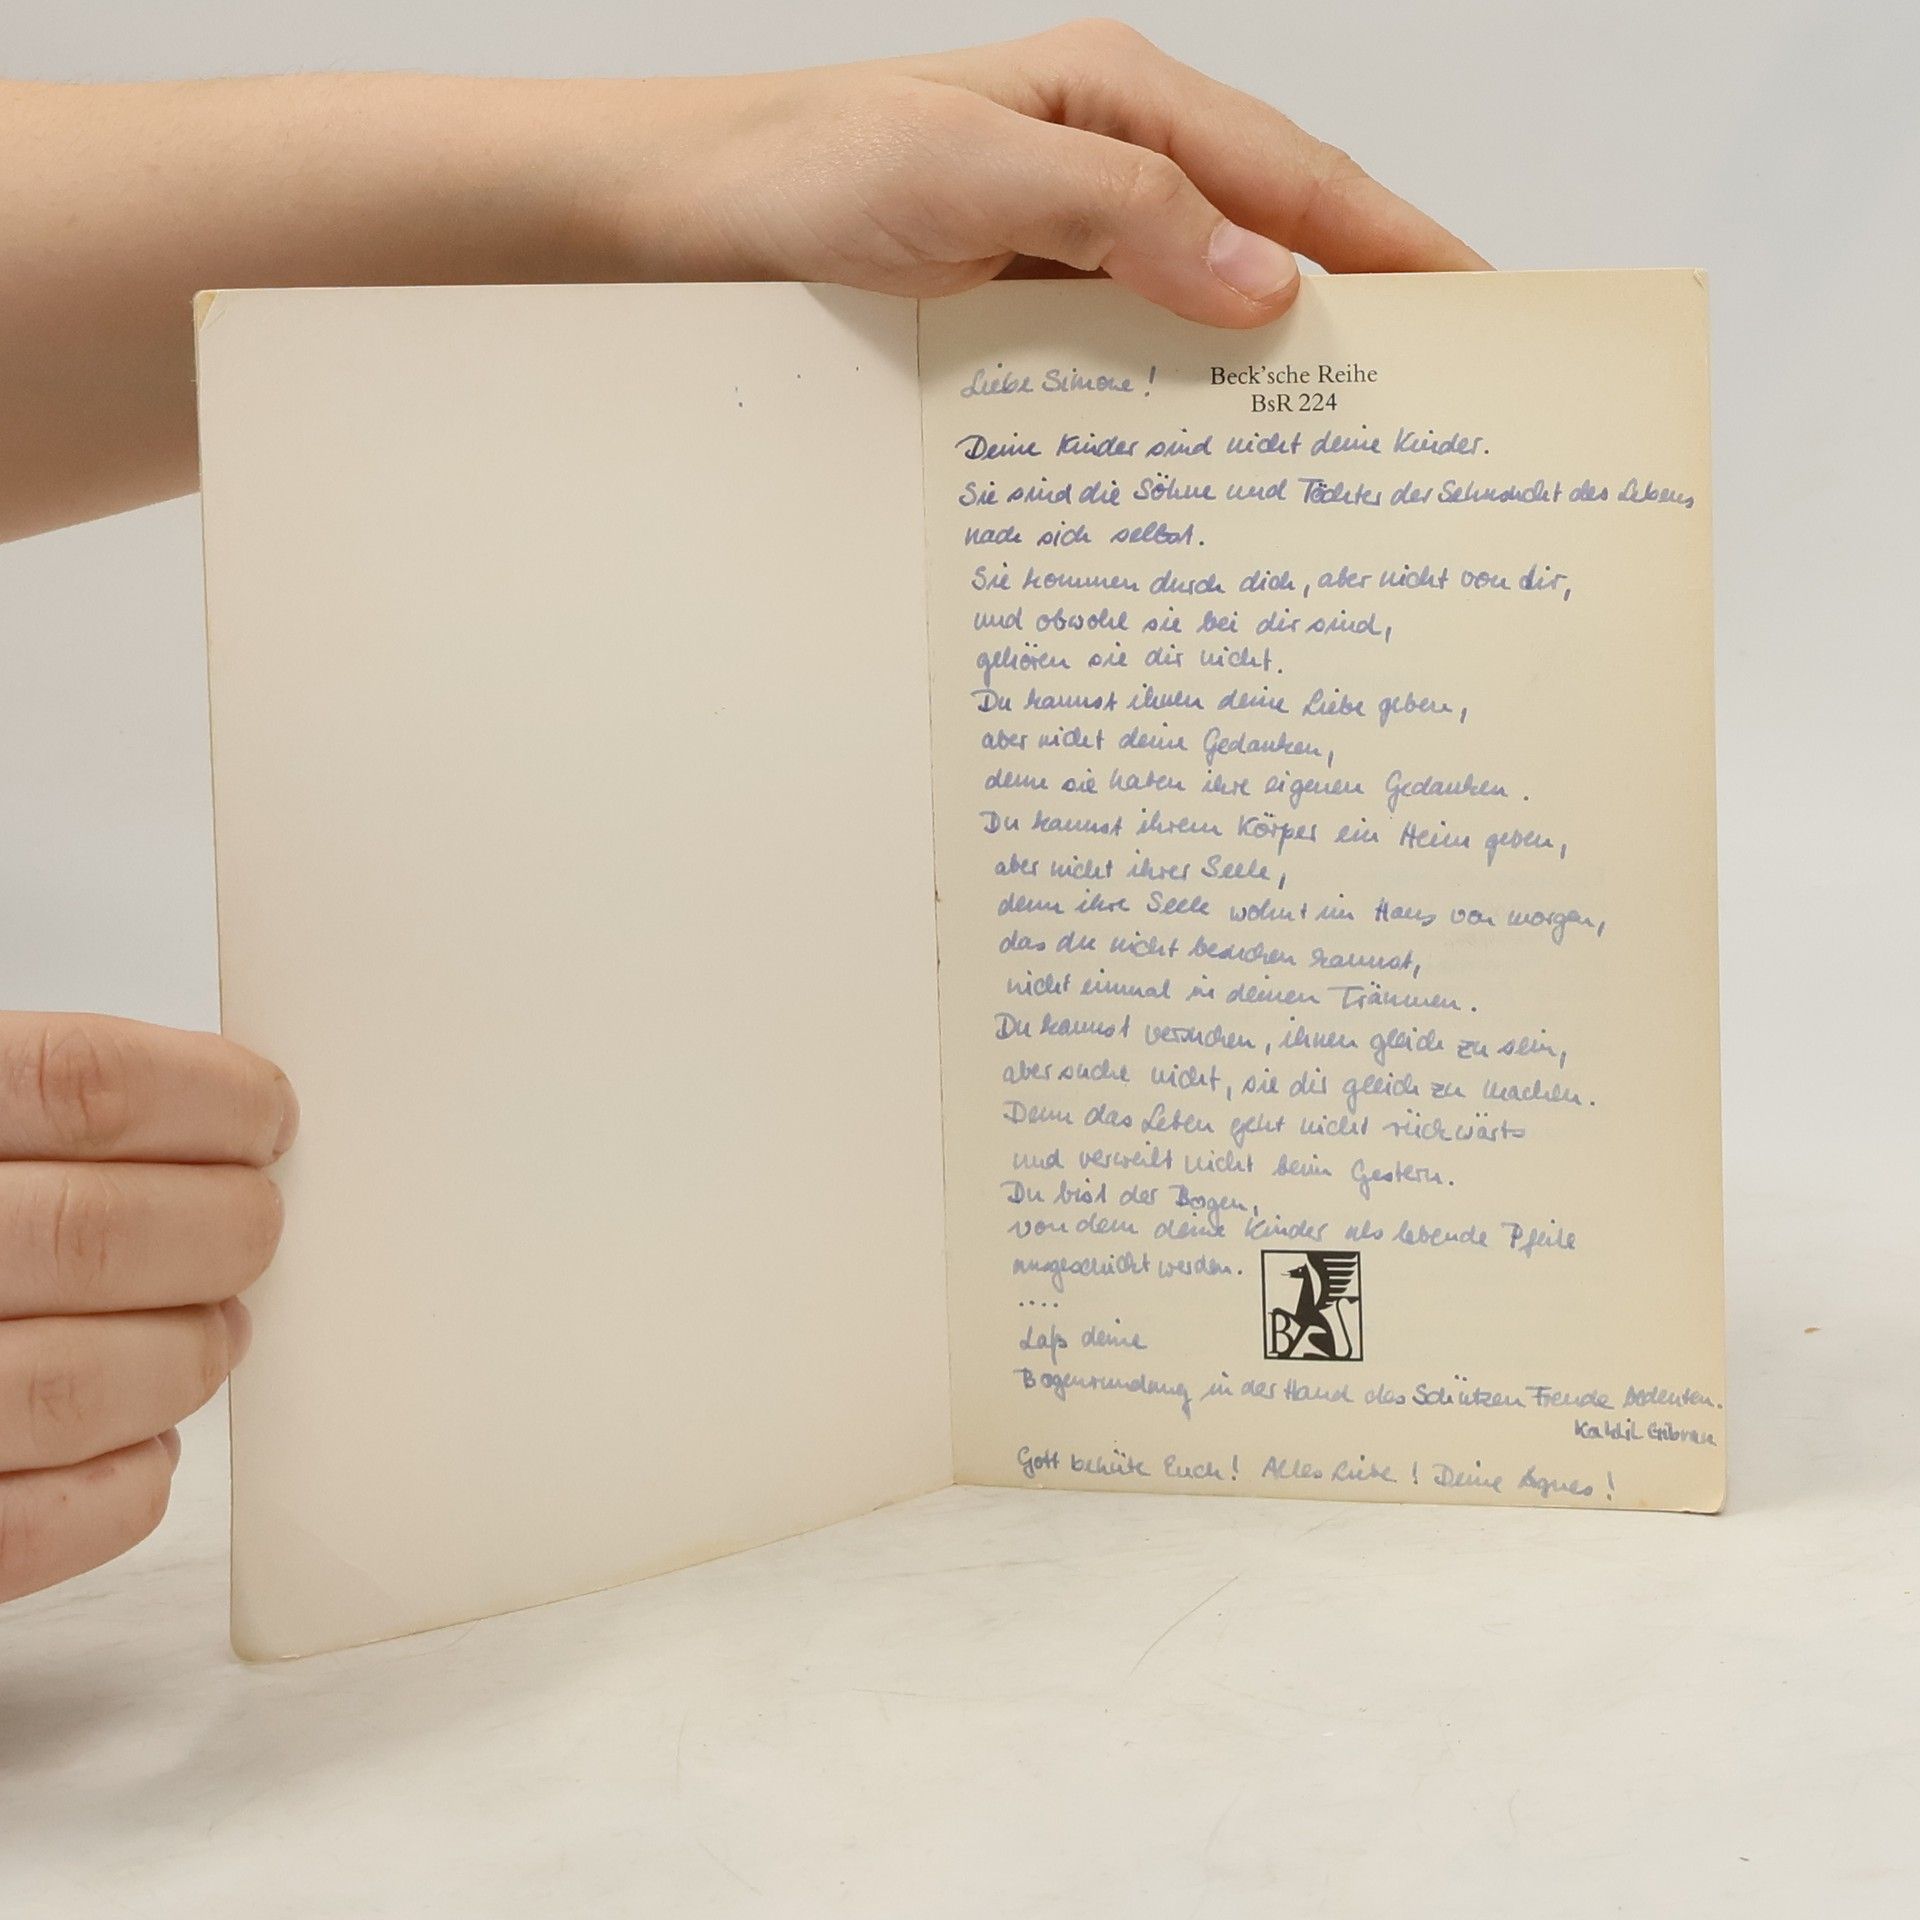 Liebe Simone!
Beck'sche Reihe
BsR 224
Deine Kinder sind nicht deine Kinder.
Sie sind die Söhne und Töchter der Sehnsucht des Lebens
nach sich selbst.
Sie kommen durch dich, aber nicht von dir,
und obwohl sie bei dir sind,
gehören sie dir nicht.
Du kannst ihnen deine Liebe geben,
aber nicht deine Gedanken,
denn sie haben ihre eigenen Gedanken.
Du kannst ihrem Körper ein Heim geben,
aber nicht ihrer Seele,
denn ihre Seele wohnt im Haus von morgen,
das du nicht besuchen kannst,
nicht einmal in deinen Träumen.
Du kannst versuchen, ihnen gleich zu sein,
aber suche nicht, sie dir gleich zu machen.
Denn das Leben geht nicht rückwärts
und verweilt nicht beim Gestern.
Du bist der Bogen,
von dem deine Kinder als lebende Pfeile
ausgeschickt werden.
....
BSR
Laß deine
Bogenrundung in der Hand des Schützen Freude bedeuten.
Kahlil Gibran
Gott behüte Euch! Alles Liebe! Deine Agnes!